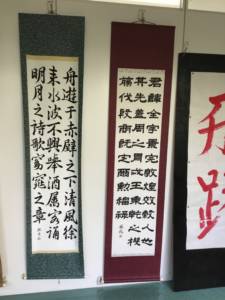 君諱全字景完敦煌效穀人也
其先蓋周之胄武王秉乾之機
翦伐殷商既定爾勲福祿
舟遊于赤壁之下清風徐
来水波不興舉酒属客誦
明月之詩歌窈窕之章